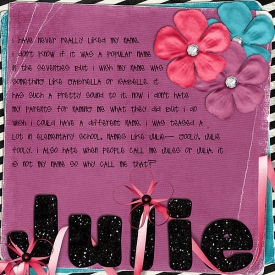 I have never really liked my name.
I don't know if it was a popular name
in the seventies but I wish my name was
something like Isabella or Isabelle. It
has such a pretty sound to it. Now I don't hate
my parents for naming me what they did but I do
wish I could have a different name. I was teased a
lot in elementary school. Names like Julie- Cooly, Julie
Fooly. I also hate when people call me Jules or Julia. It
is not my name so why call me that?
Julie